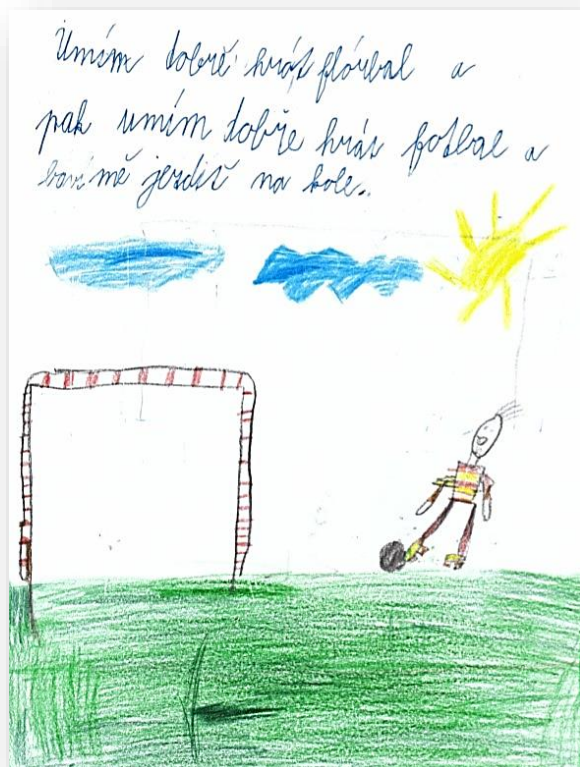 Umím dobře hrát flórbal a
pak umím dobře hrát fotbal a
baví mě jezdit na kole.